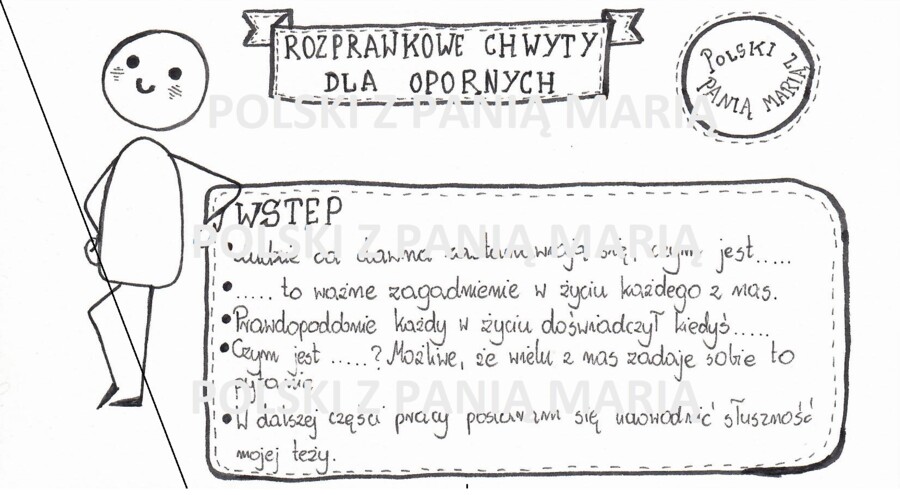 ROZPRAWKOWE CHWYTY
DLA OPORNYCH
POLSKI Z
PANIĄ MARIĄ
POLSKI Z PANIĄ MARIĄ
WSTEP
• Ludzie od dawna się, czym jest.....
POLSKI Z PANIĄ MARIĄ
• ..... to ważne zagadnienie w życiu każdego z nas.
• Prawdopoddbnie każdy w życiu doświadczył kiedyś.....
• Czym jest .....? Możliwe, że wielu z nas zadaje sobie to
pytanie.
POLSKI Z PANIĄ MARIĄ
• W dalszej części pracy postaram się udowodnić słuszność
mojej tezy.